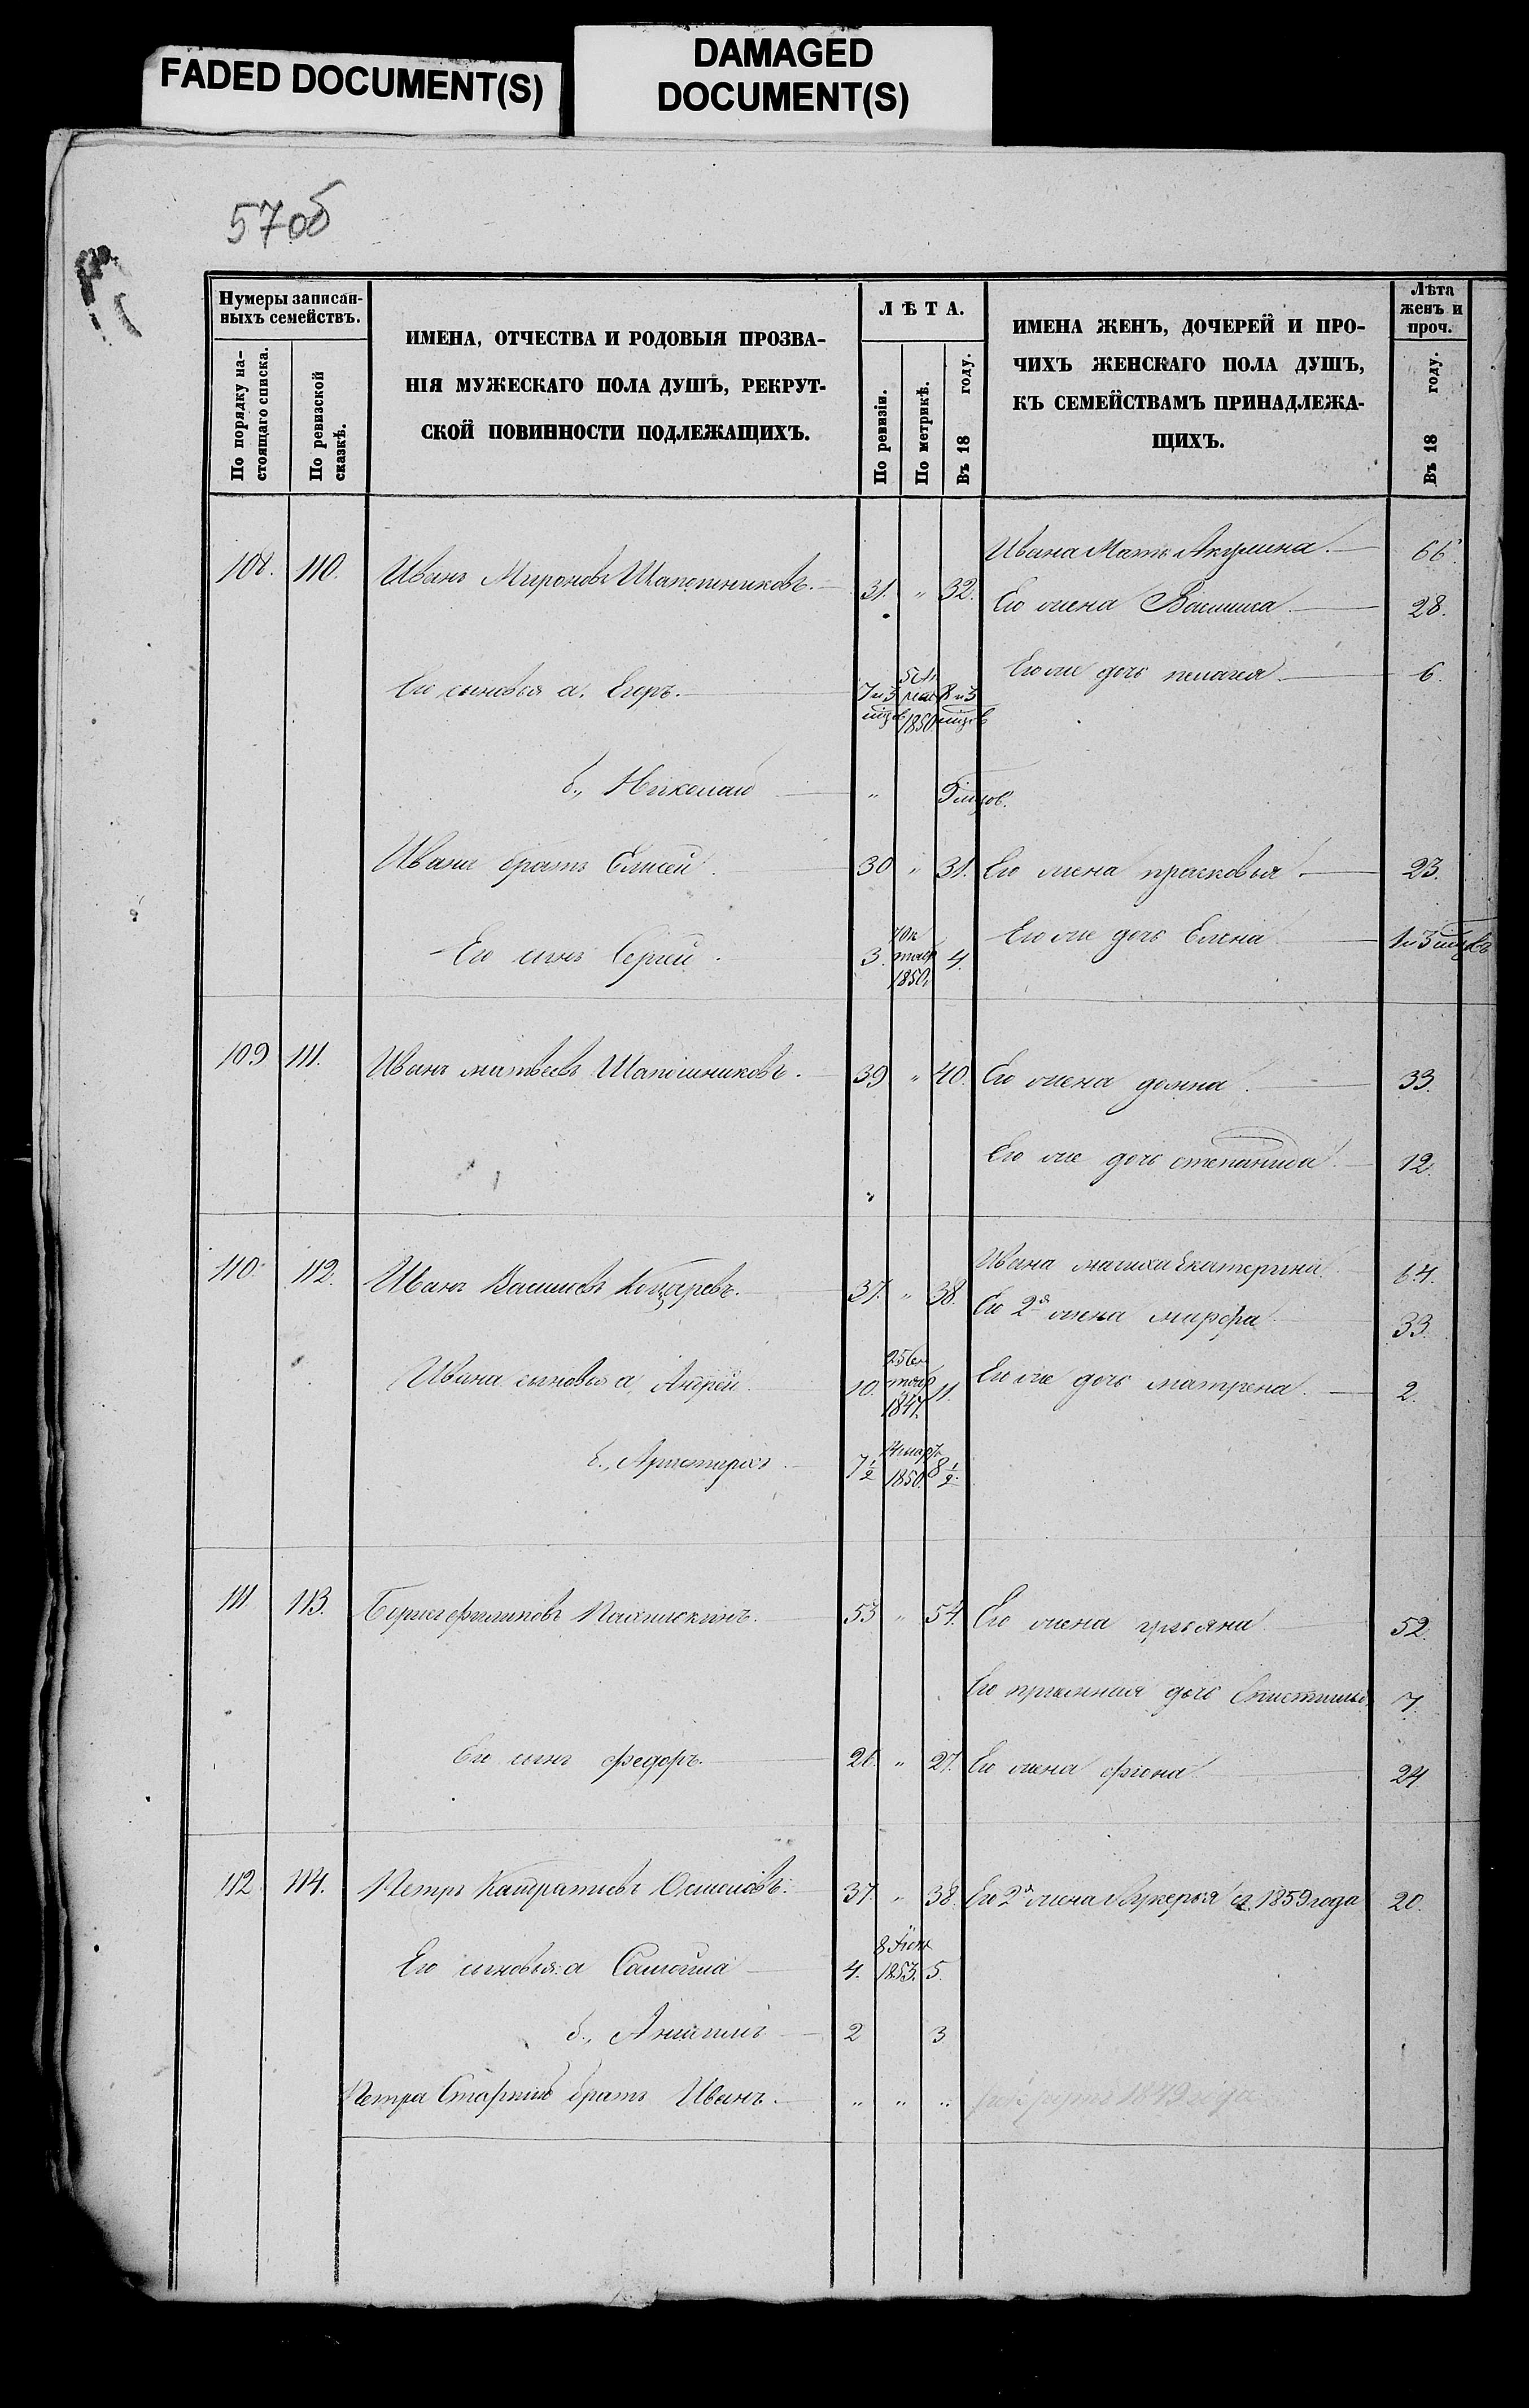 FADED DOCUMENT(S)
DAMAGED
DOCUMENT(S)
57об
Нумеры записан-
ныхъ семействъ.
По порядку на-
стоящаго списка.
По ревизской
сказкѣ.
ИМЕНА, ОТЧЕСТВА И РОДОВЫЯ ПРОЗВА-
НІЯ МУЖЕСКАГО ПОЛА ДУШЪ, РЕКРУТ-
СКОЙ ПОВИННОСТИ ПОДЛЕЖАЩИХЪ.
ЛѢТА.
По ревизіи.
По метрикѣ.
Въ 18 году.
ИМЕНА ЖЕНЪ, ДОЧЕРЕЙ И ПРО-
ЧИХЪ ЖЕНСКАГО ПОЛА ДУШЪ,
КЪ СЕМЕЙСТВАМЪ ПРИНАДЛЕЖА-
ЩИХЪ.
Лѣта
женъ и
проч.
Въ 18 году.
Ивана Мать Акулина. 66.
108. 110. Иванъ Мироновъ Шапошниковъ. 31. " 32. Его жена Василиса 28.
Его же дочь пелагея 6.
Его сыновья а. Егоръ. 7 и 3 мцов 1850 8 и 3 мцов
б., Николай " 9 мцов.
Ивана братъ Елисей. 30 " 31. Его жена прасковья 23.
Его сынъ Сергей. 3. 1850. 4. Его же дочь Елена 1 и 3 мцовъ
109 111. Иванъ матвеевъ Шапошниковъ. 39 " 40. Его жена домна 33.
Его же дочь степанида 12.
Ивана мачиха Екатерина. 64.
110. 112. Иванъ Васильевъ 37. " 38. Его 2я жена марфа 33.
Ивана сыновья а, Андрей 10. 1847. 11. Его же дочь матрена. 2.
б., Аристархъ 7 1/2 1850. 8 1/2.
111 113. филиповъ 53 " 54. Его жена ульяна 52.
Его приемная дочь 7.
Его сынъ федоръ. 26. " 27. Его жена фіона 24
112 114. Петръ Осиповъ. 37. " 38. Его 2я жена Лукерья съ 1859 года 20.
Его сыновья: а 4. 8 Июн 1853. 5.
б., 2 3
Петра Старшій братъ Иванъ. " " " рекрутъ 1849 года